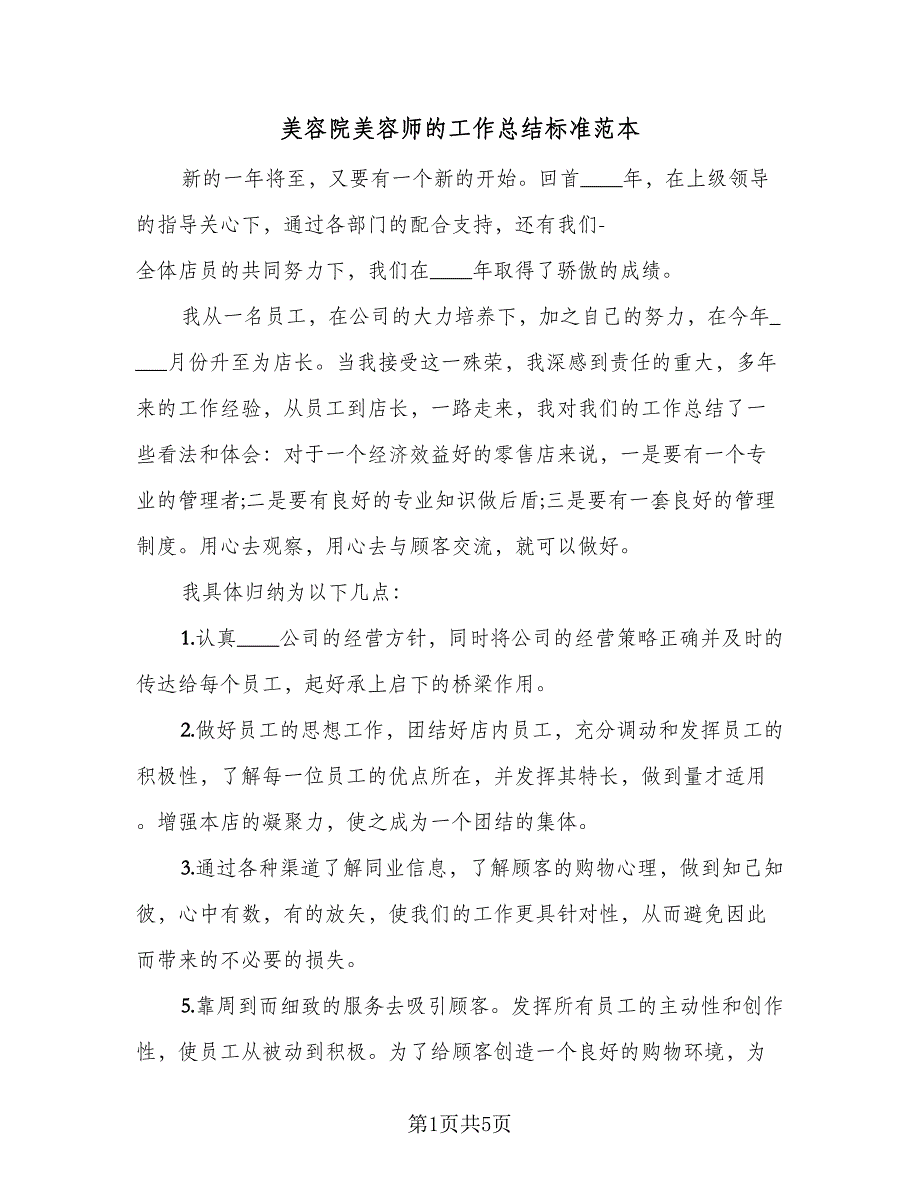 美容院美容师的工作总结标准范本
新的一年将至，又要有一个新的开始。回首____年，在上级领导
的指导关心下，通过各部门的配合支持，还有我们-
全体店员的共同努力下，我们在____年取得了骄傲的成绩。
我从一名员工，在公司的大力培养下，加之自己的努力，在今年_
___月份升至为店长。当我接受这一殊荣，我深感到责任的重大，多年
来的工作经验，从员工到店长，一路走来，我对我们的工作总结了一
些看法和体会：对于一个经济效益好的零售店来说，一是要有一个专
业的管理者;二是要有良好的专业知识做后盾;三是要有一套良好的管理
制度。用心去观察，用心去与顾客交流，就可以做好。
我具体归纳为以下几点：
1.认真____公司的经营方针，同时将公司的经营策略正确并及时的
传达给每个员工，起好承上启下的桥梁作用。
2.做好员工的思想工作，团结好店内员工，充分调动和发挥员工的
积极性，了解每一位员工的优点所在，并发挥其特长，做到量才适用
。增强本店的凝聚力，使之成为一个团结的集体。
3.通过各种渠道了解同业信息，了解顾客的购物心理，做到知己知
彼，心中有数，有的放矢，使我们的工作更具针对性，从而避免因此
而带来的不必要的损失。
5.靠周到而细致的服务去吸引顾客。发挥所有员工的主动性和创作
性，使员工从被动到积极。为了给顾客创造一个良好的购物环境，为
第1页共5页